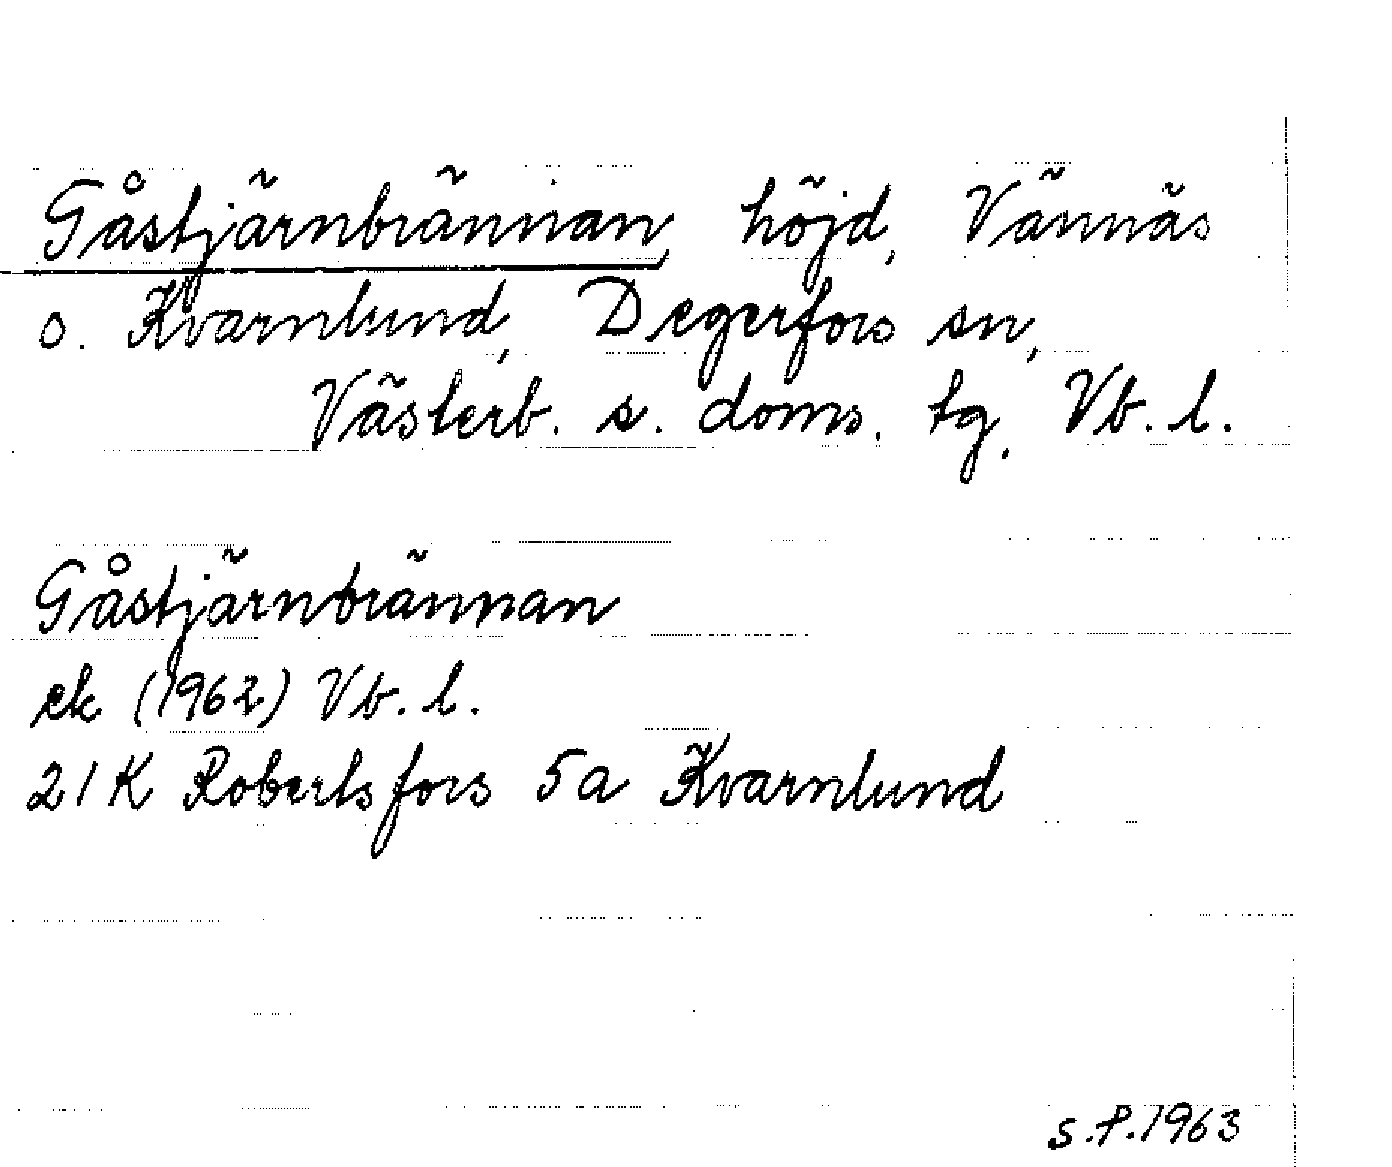 Gåstjärnbrännan, höjd, Vännäs
o. Kvarnlund, Degerfors sn,
Västerb. s. doms. tg. Vb. l.
Gåstjärnbrännan
ek (1962) Vb. l.
21 K Robertsfors 5a Kvarnlund
S.P. 1963